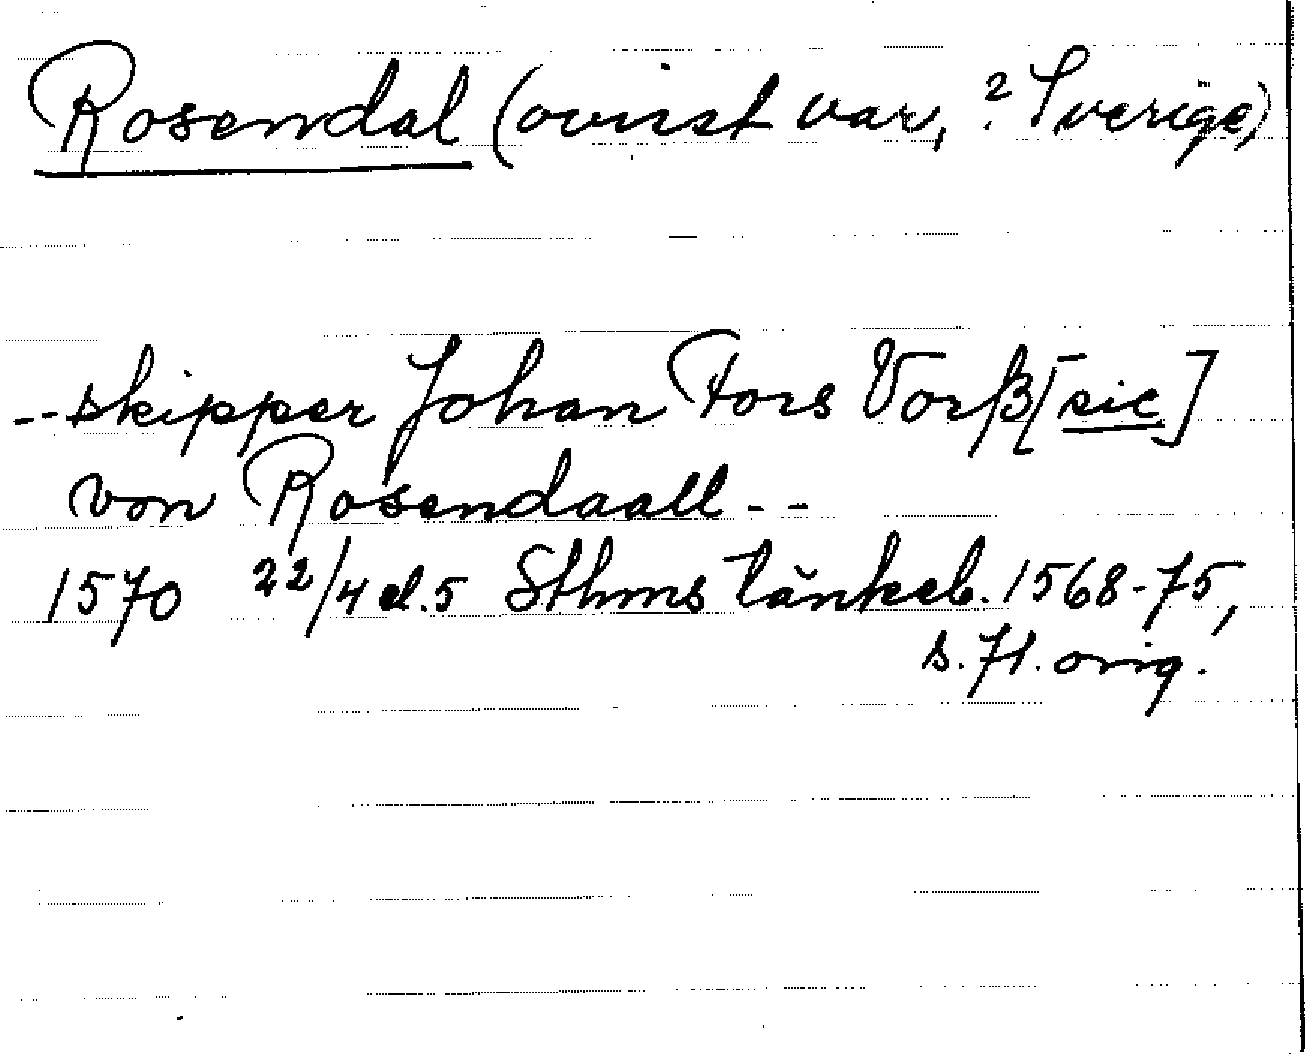 Rosendal (ovisst var, ? Sverige)
-- skipper Johan Fors Vorß [sic]
von Rosendaall --
1570 22/4 el. 5 Sthms tänkeb. 1568-75,
s. 71. orig.